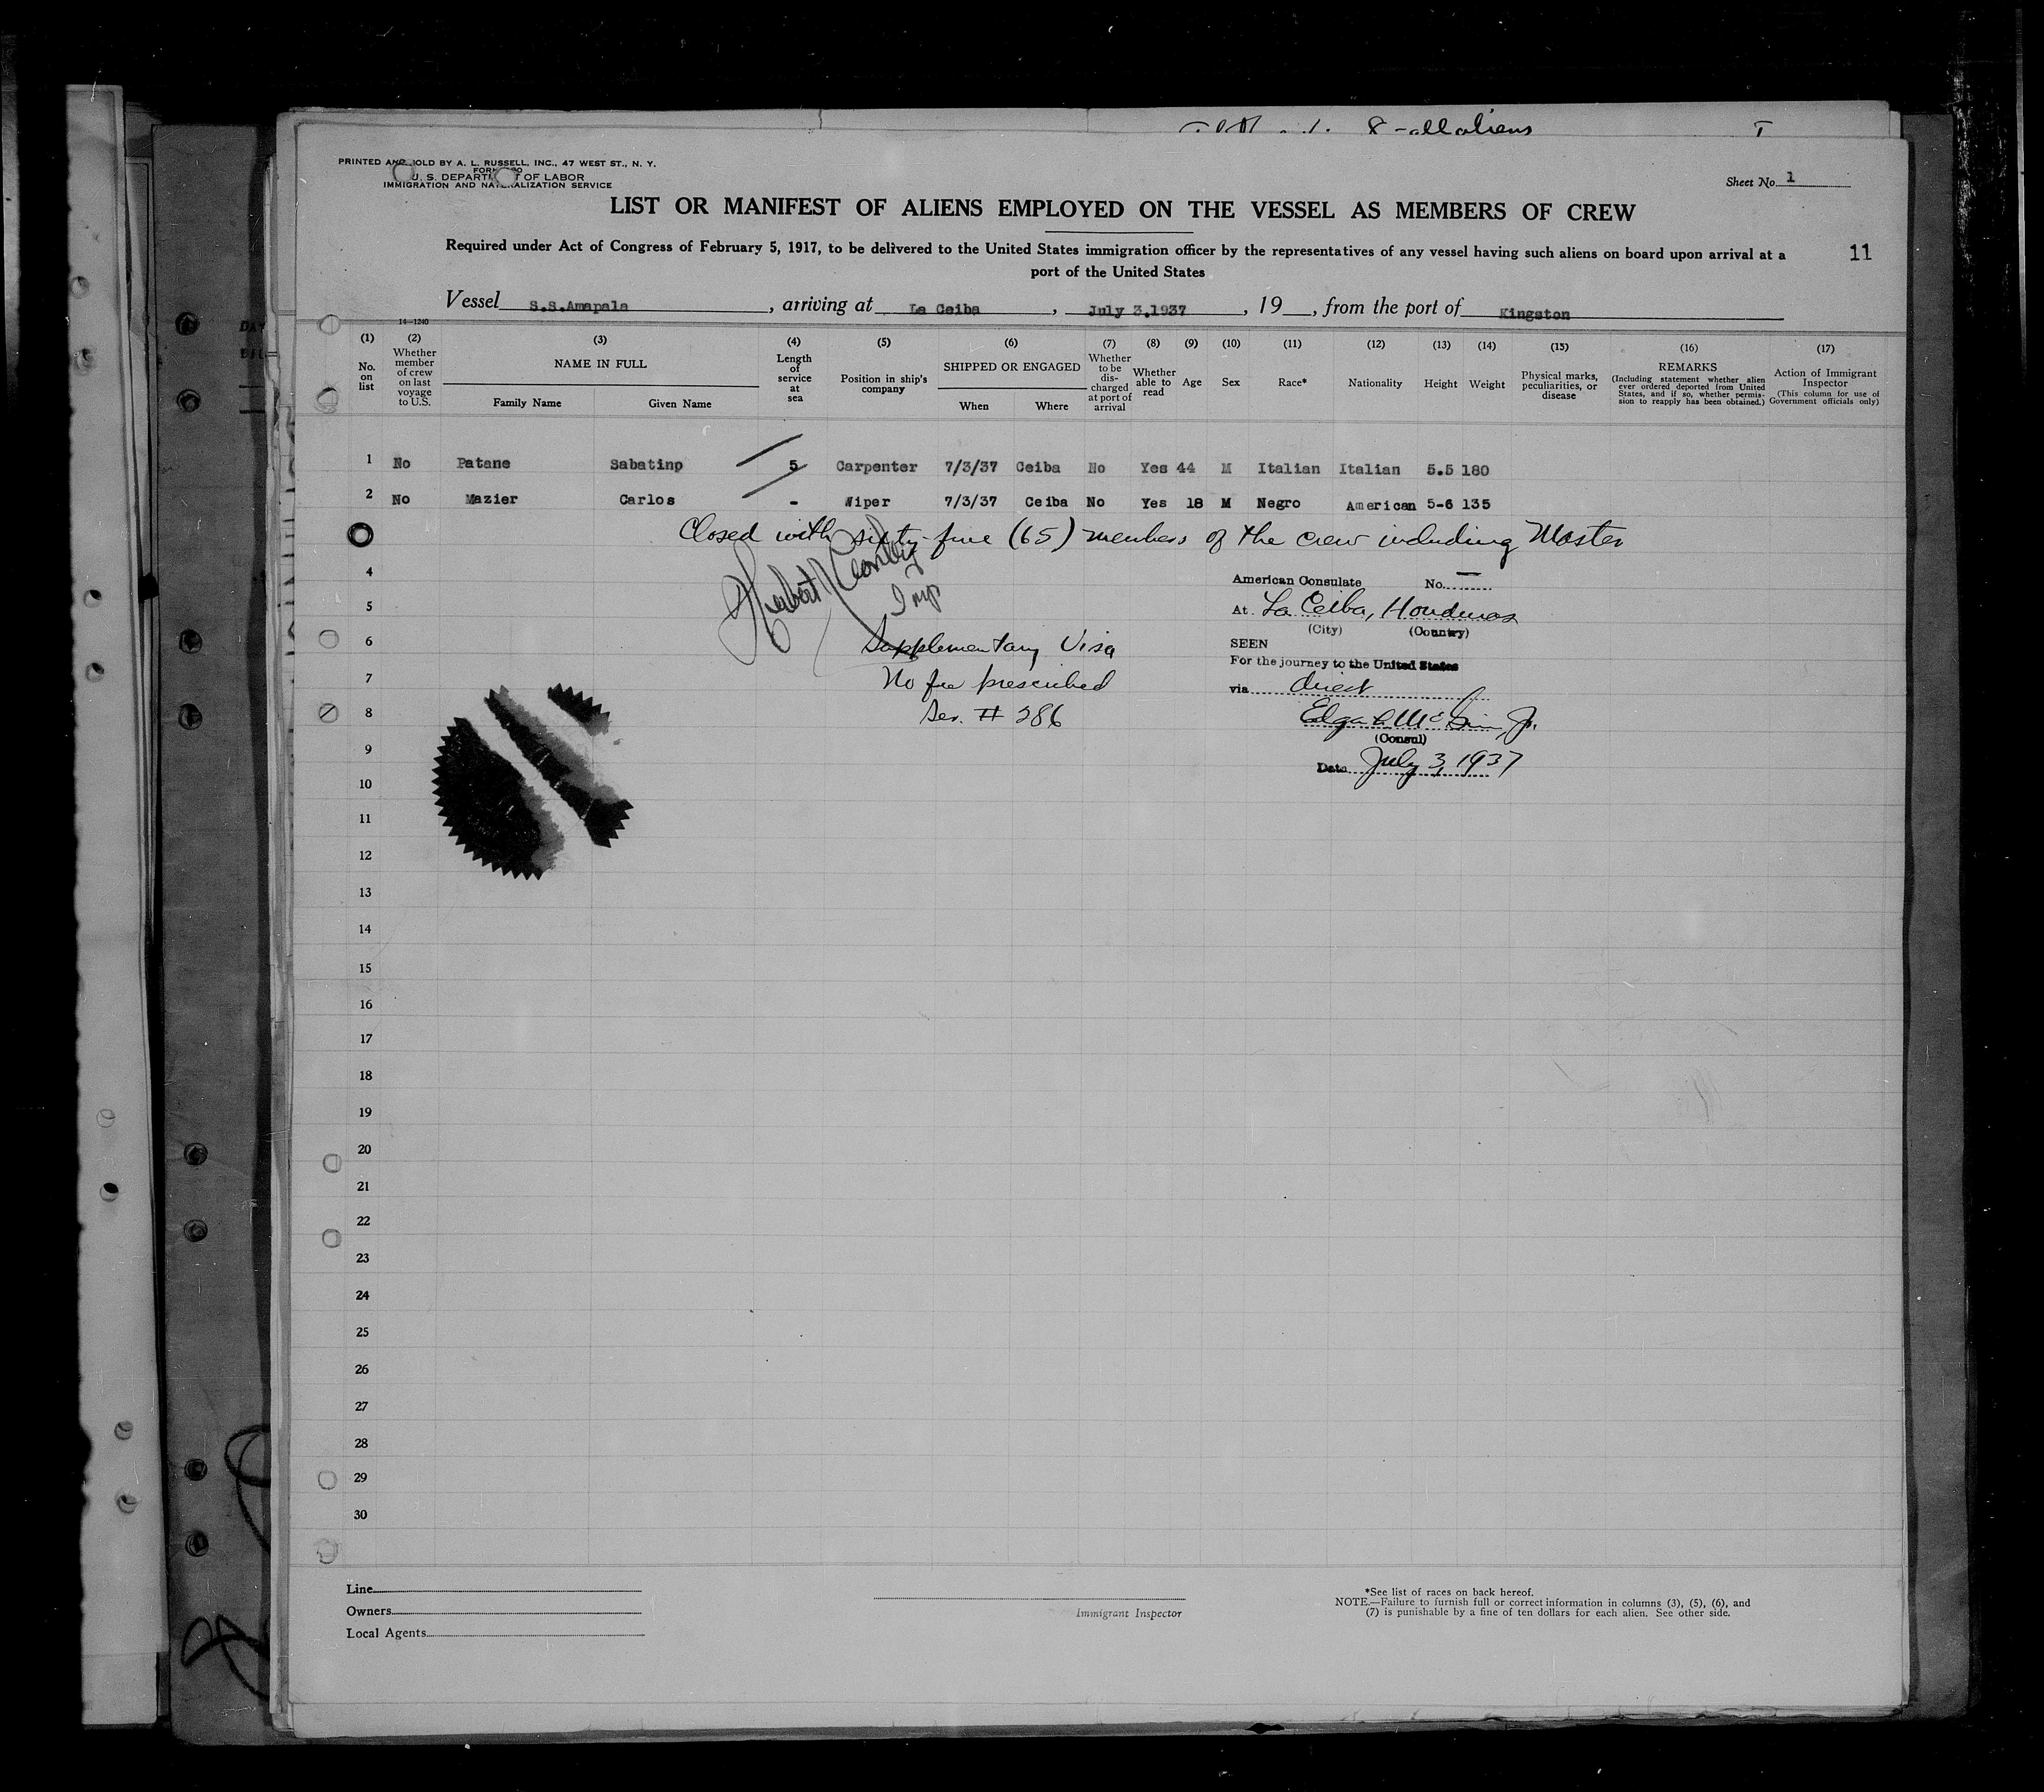 8 - all aliens
PRINTED AND SOLD BY A. L. RUSSELL, INC., 47 WEST ST., N. Y.
U. S. DEPARTMENT OF LABOR
IMMIGRATION AND NATURALIZATION SERVICE
Sheet No. 1
LIST OR MANIFEST OF ALIENS EMPLOYED ON THE VESSEL AS MEMBERS OF CREW
Required under Act of Congress of February 5, 1917, to be delivered to the United States immigration officer by the representatives of any vessel having such aliens on board upon arrival at a
port of the United States
11
Vessel S.S.Amapala, arriving at La Ceiba, July 3.1937, 19__, from the port of Kingston
14-1240
(1) (2) (3) (4) (5) (6) (7) (8) (9) (10) (11) (12) (13) (14) (15) (16) (17)
No. on list
Whether member of crew on last voyage to U.S.
NAME IN FULL
Family Name
Given Name
Length of service at sea
Position in ship's company
SHIPPED OR ENGAGED
When
Where
Whether to be discharged at port of arrival
Whether able to read
Age
Sex
Race*
Nationality
Height
Weight
Physical marks, peculiarities, or disease
REMARKS
(Including statement whether alien ever ordered deported from United States, and if so, whether permission to reapply has been obtained.)
Action of Immigrant Inspector
(This column for use of Government officials only)
1 No Patane Sabatino 5 Carpenter 7/3/37 Ceiba No Yes 44 M Italian Italian 5.5 180
2 No Mazier Carlos - Wiper 7/3/37 Ceiba No Yes 18 M Negro American 5-6 135
Closed with sixty-five (65) members of the crew including Master
4
American Consulate No. —
5
At La Ceiba, Honduras
(City) (Country)
6
Supplementary Visa
SEEN
For the journey to the United States
7
No fee prescribed
via direct
8
Ser. # 286
(Consul)
9
Date July 3, 1937
10
11
12
13
14
15
16
17
18
19
20
21
22
23
24
25
26
27
28
29
30
Line
Owners
Local Agents
Immigrant Inspector
*See list of races on back hereof.
NOTE.—Failure to furnish full or correct information in columns (3), (5), (6), and
(7) is punishable by a fine of ten dollars for each alien. See other side.